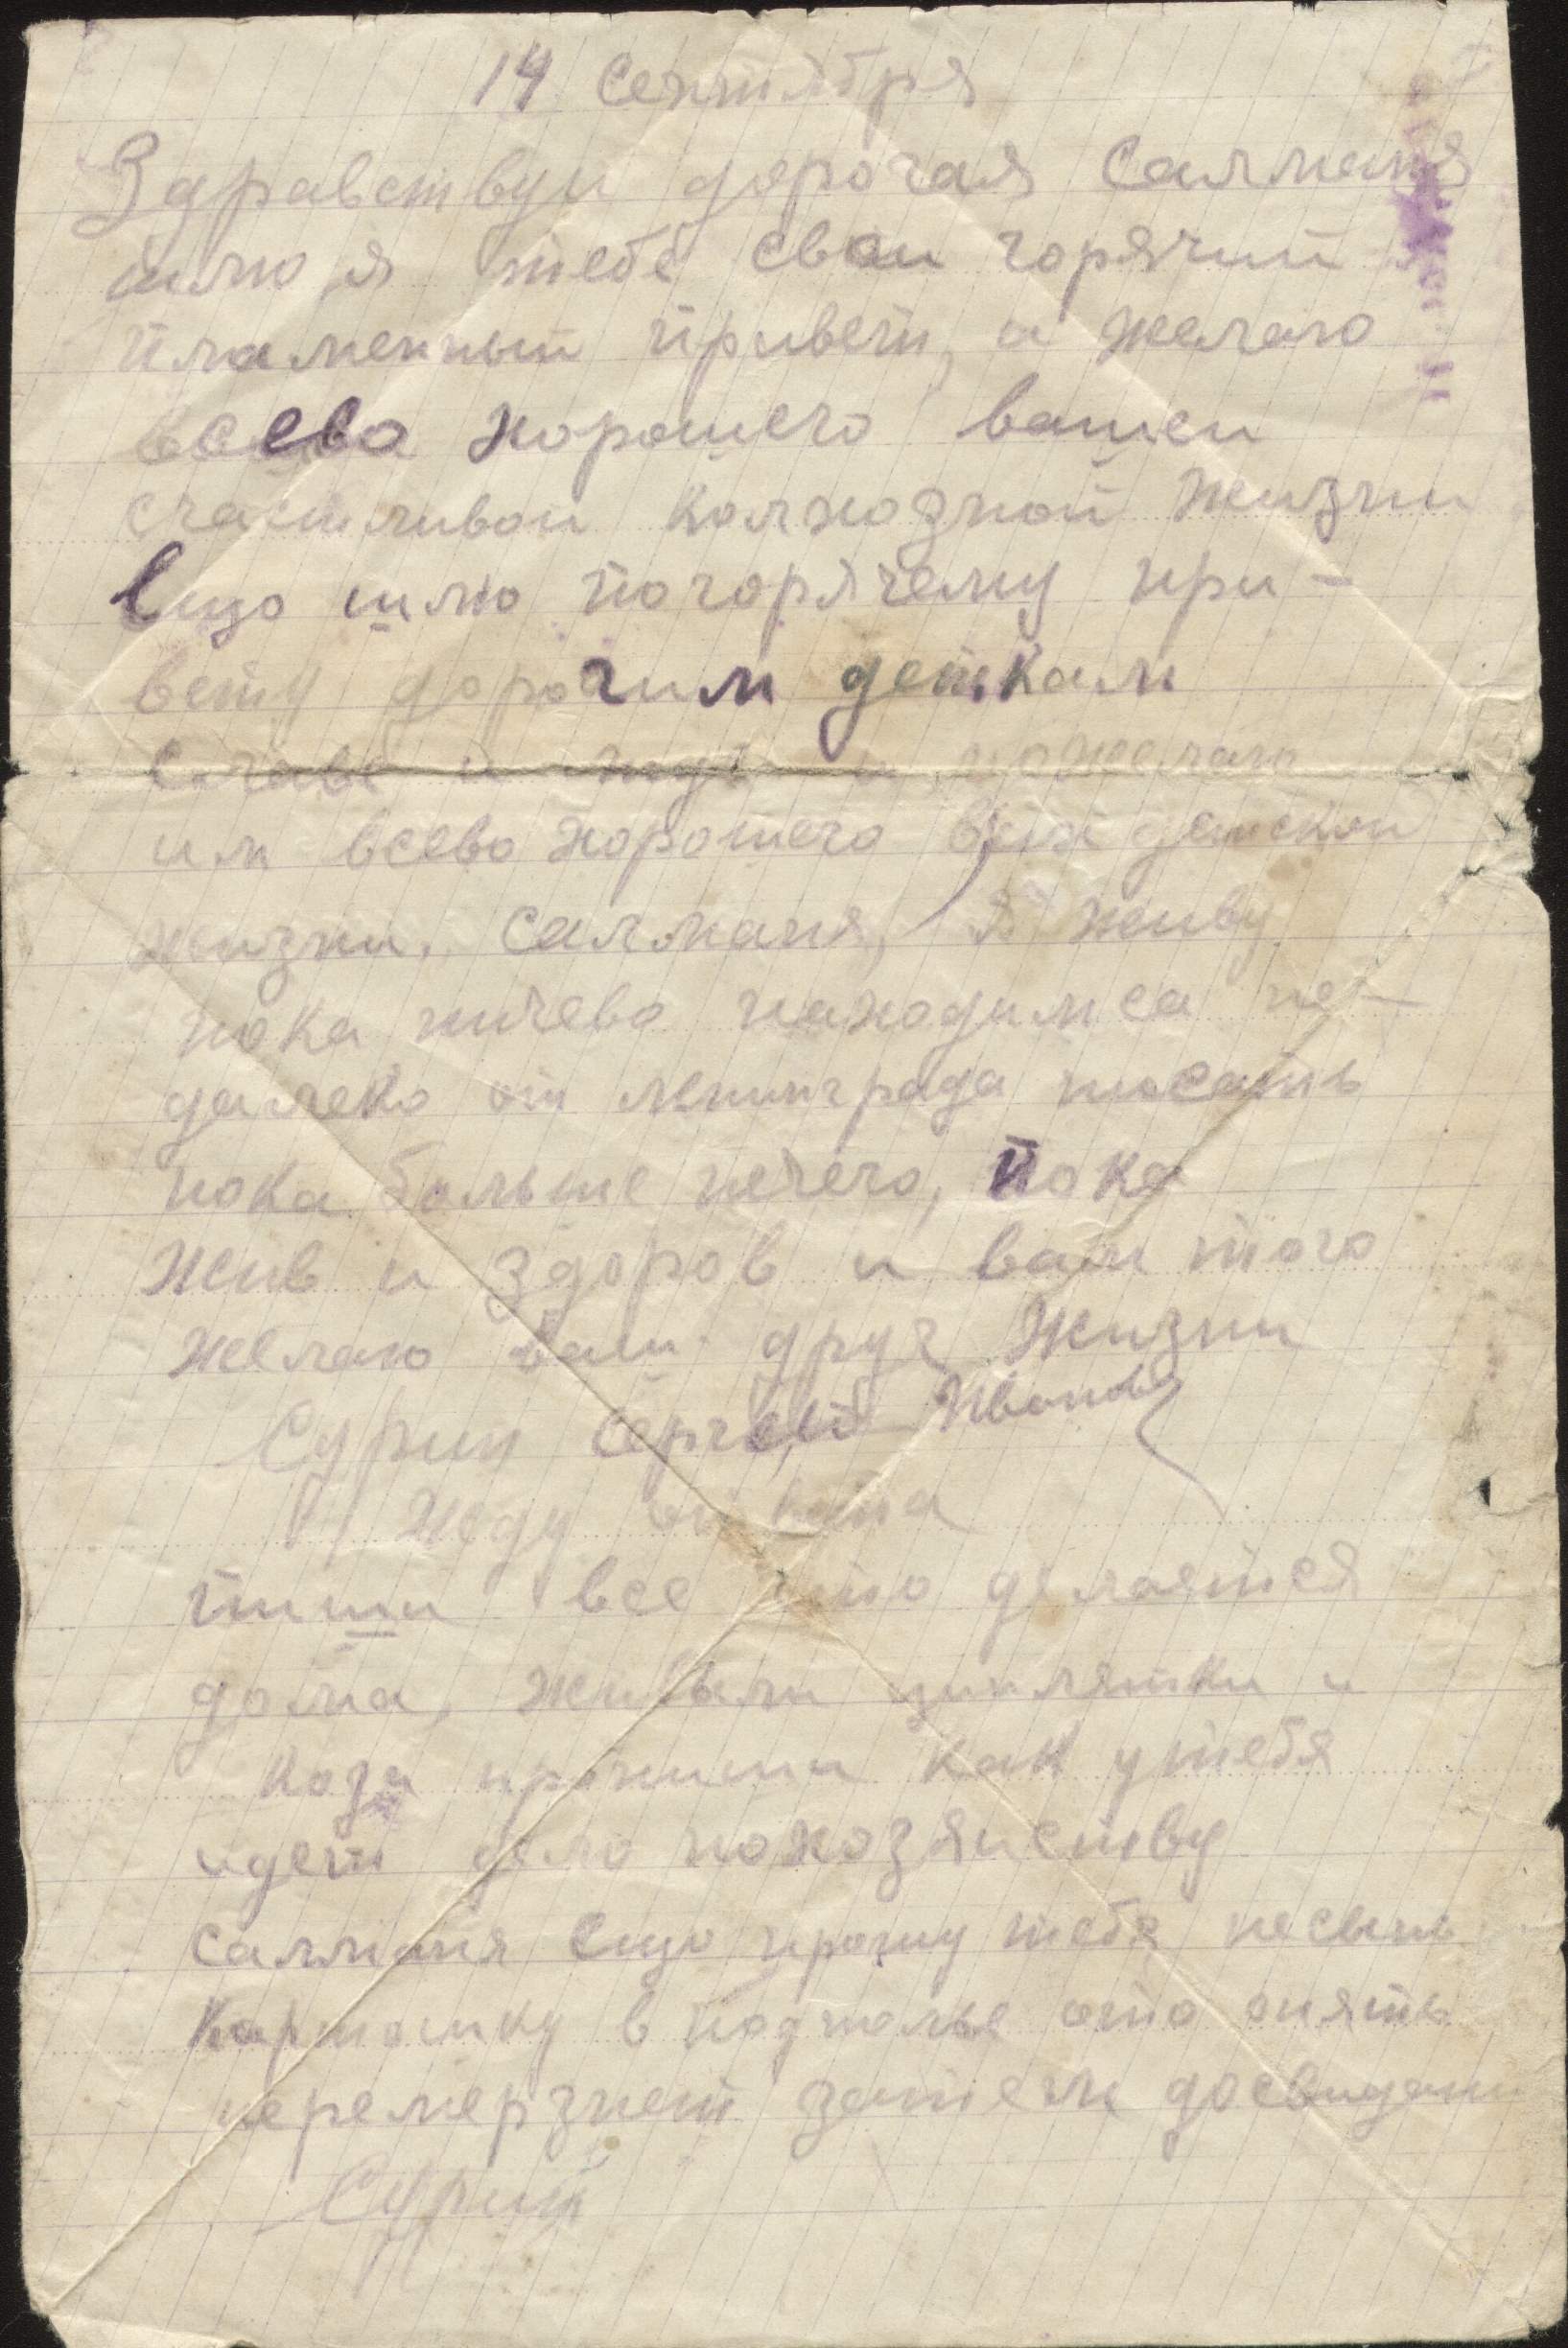 14 сентября
Здравствуи дорогая Салманя
шлю я тебе свои горячий
пламенный привет, и желаю
всево хорошего вашеи
счастливои колхозной жизни
Ещо шлю погорячему при-
вету дорогим деткам
Славе и и пожелаю
им всево хорошего в детскои
жизни. Салманя, я живу
пока ничево находимса не-
далеко от ленинграда писать
пока больше нечего, пока
жив и здоров и вам того
желаю ваш друг жизни
Сурин Сергей
Жду ответа
пиши все што делается
дома, живыли циплятки и
коза пропиши как утебя
идет дело похозяиству
салманя ещо прошу тебя несыпь
картошку в подполье ото опять
перемерзнет затем досвидани
Сурин